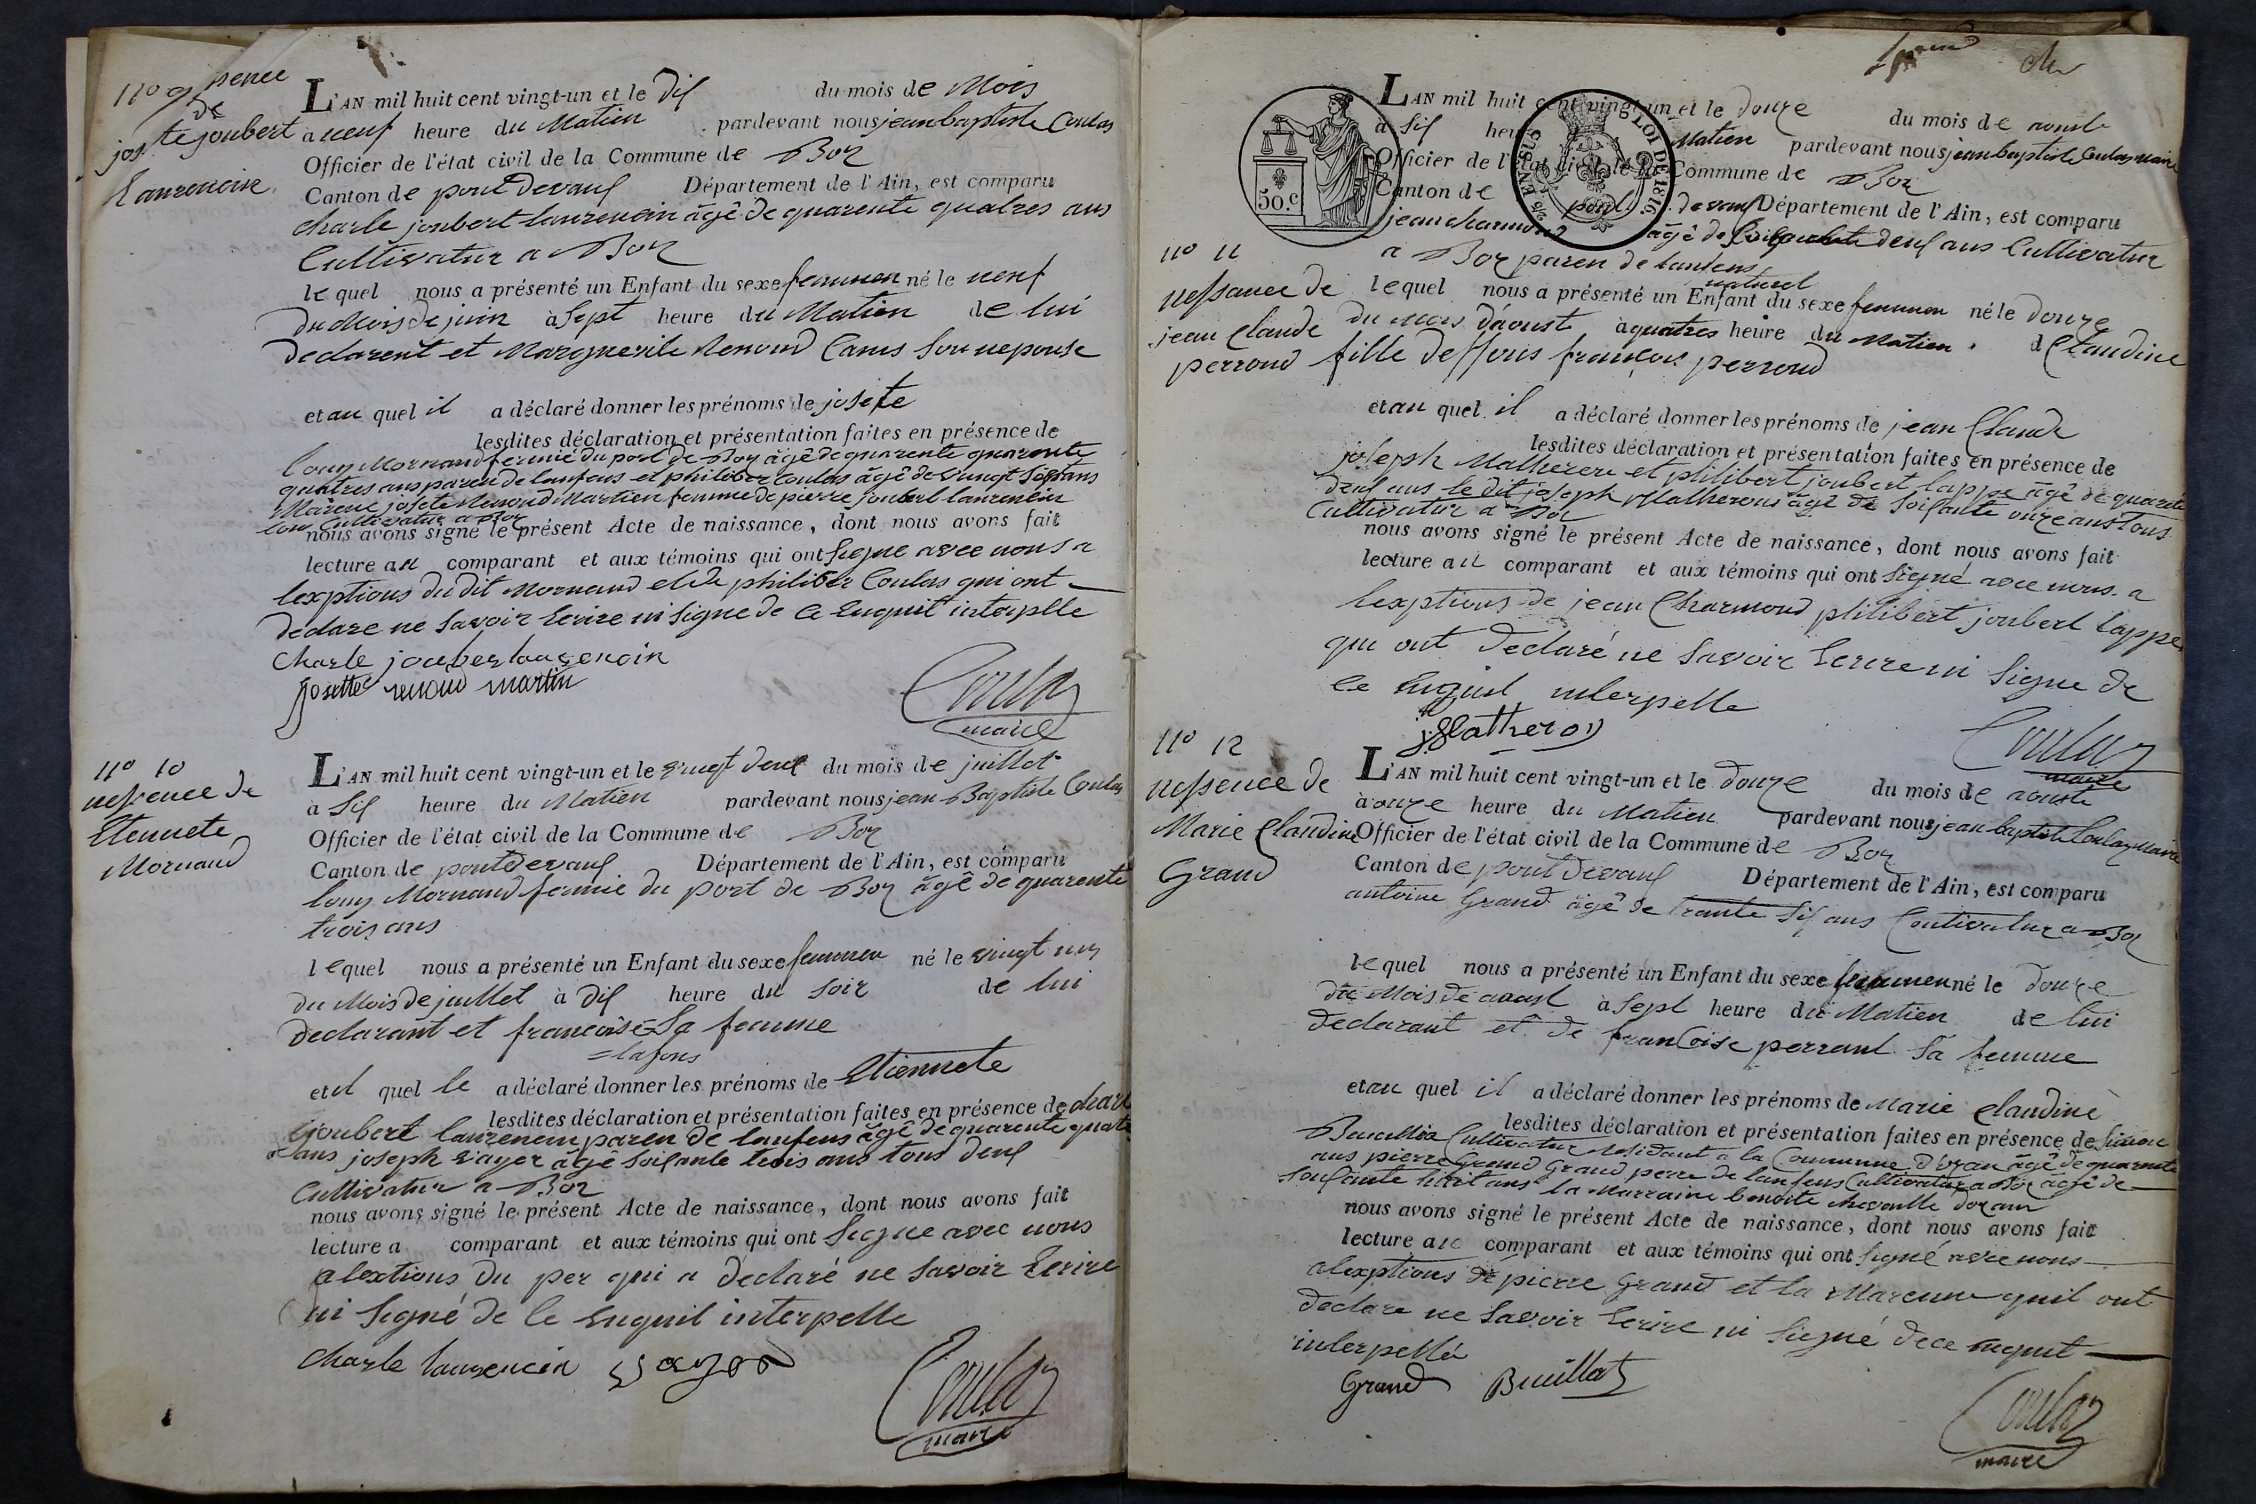 n.o 9 
de
josete joubert
laurencin
L'AN mil huit cent vingt-un et le dix du mois de Mois
a neuf heure du Matien pardevant nous jean baptiste Coulas
Officier de l'état civil de la Commune de Boz
Canton de pont devaux Département de l'Ain, est comparu
charle joubert laurencin âgê de quarente quatres ans
Cultivatur a Boz
lequel nous a présenté un Enfant du sexe femmen né le neuf
du Mois de juin à sept heure du Matien de lui
declarent et Margueritte Renoud Canus son nepouse
et au quel il a déclaré donner les prénoms de josete
lesdites déclaration et présentation faites en présence de
louy Mornand fermié du port de Boz âgê de quarente quarente
quatres ans paren de lanfens et philiber Coulas âgê de vungt six ans
Mareine josete Renoud Martien femme de pierre joubert laurencin
tous Cultivatur a Boz
nous avons signé le présent Acte de naissance, dont nous avons fait
lecture au comparant et aux témoins qui ont signe avec nous a
lexptions du dit Mornand et de philiber Coulas qui ont
declare ne savoir Ecrire ni signe de ce Enquit interpelle
charle jouber laurencin
josette renoud martin
Coulas
maire
n.o 10
nessence de
Etennete
Mornand
L'AN mil huit cent vingt-un et le vingt deux du mois de juillet
a six heure du Matien pardevant nous jean Baptiste Coulas
Officier de l'état civil de la Commune de Boz
Canton de pontdevaux Département de l'Ain, est comparu
louy Mornand fermie du port de Boz âgê de quarente
trois ans
lequel nous a présenté un Enfant du sexe femmen né le vingt un
du Mois de juillet à dix heure du soir de lui
declarant et francoise Sa femme
=lafons
et quel le a déclaré donner les prénoms de Etiennete
lesdites déclaration et présentation faites en présence de charl
joubert laurencin paren de lanfens âgê de quarente quatre
ans joseph vayer âgê soixante trois ans tous deux
Cultivatur a Boz
nous avons signé le présent Acte de naissance, dont nous avons fait
lecture a comparant et aux témoins qui ont signe avec nous
alextions du per qui a declaré ne savoir Ecrire
ni signé de ce Enquit interpelle
charle laurencin vayer
Coulas
maire
50.c
LOI DE 1816
n.o 11
nessance de
jean Claude
perroud
LAN mil huit cent vingt-un et le douze du mois de aoust
à six heure Matien pardevant nous jean baptiste Coulas maire
Officier de l'état civil de la Commune de Boz
Canton de pont devaux Département de l'Ain, est comparu
jean charmond âgê de deux ans Cultivatur
a Boz paren de lanfens
naturel
lequel nous a présenté un Enfant du sexe femmen né le douze
du Mois d'aoust à quatres heure du Matien. d Claudine
fille deffons francois perroud
et au quel il a déclaré donner les prénoms de jean Claude
lesdites déclaration et présentation faites en présence de
joseph Matheron et philibert joubert lappe âgê de quarente
deux ans le dit joseph Matherons âgê de soixante onze ans tous
Cultivatur a Boz
nous avons signé le présent Acte de naissance, dont nous avons fait
lecture au comparant et aux témoins qui ont signé avec nous a
lexptions de jean Charmond philibert joubert lappe
qui ont declaré ne savoir Ecrire ni signe de
ce Enquit interpelle
j Matheron
Coulas
maire
n.o 12
nessence de
Marie Claudine
Grand
L'AN mil huit cent vingt-un et le douze du mois de aouste
à onze heure du Matien pardevant nous jean baptiste Coulas Maire
Officier de l'état civil de la Commune de Boz
Canton de pont devaux Département de l'Ain, est comparu
antoine Grand âgê de trante six ans Coultivatur a Boz
lequel nous a présenté un Enfant du sexe femmen né le douze
du Mois de aoust à sept heure du Matien de lui
declarant et de francoise perrant sa femme
et au quel il a déclaré donner les prénoms de Marie Claudine
lesdites déclaration et présentation faites en présence de
Cultivatur residant a la Commune d'ozan âgê de quarente
ans pierre Grand Grand perre de lanfens Cultivatur a Boz âgê de
soixante huit ans la Marraine benoite d'ozan
nous avons signé le présent Acte de naissance, dont nous avons fait
lecture au comparant et aux témoins qui ont signé avec nous
alexptions de pierre Grand et la Mareine quil ont
declare ne savoir Ecrire ni signé de ce enquit
interpellé
Grand Buillat
Coulas
maire